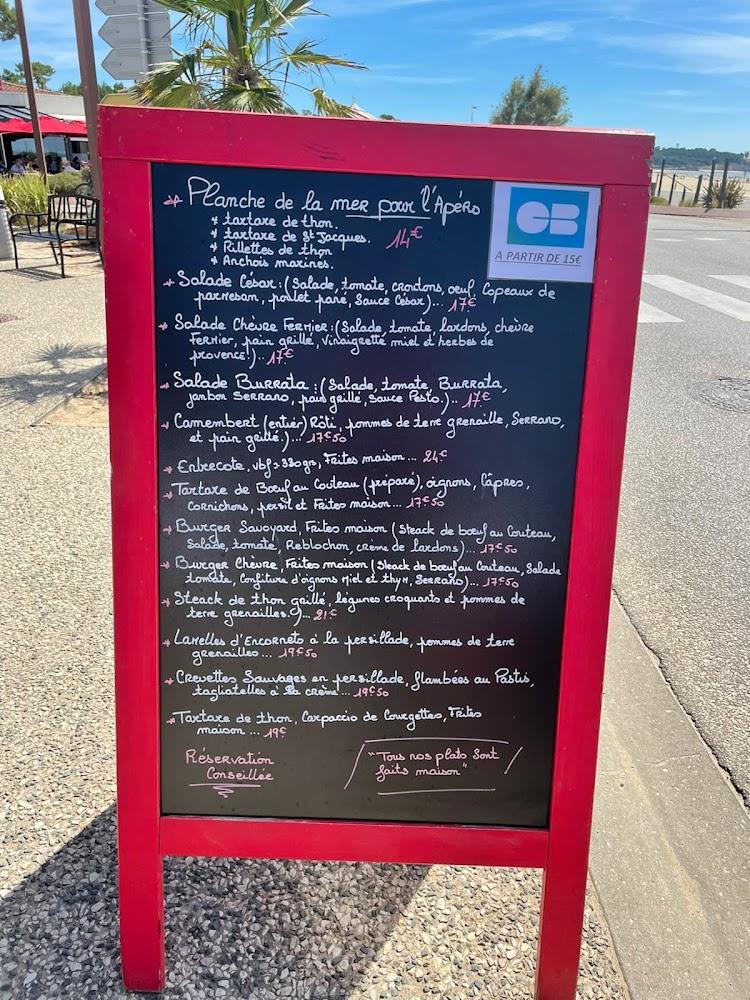 Planche de la mer pour l'Apéro
* tartare de thon.
* tartare de St Jacques.
14€
* Rillettes de thon
* Anchois marinés.
CB
A PARTIR DE 15€
Salade César : (Salade, tomate, croutons, oeuf, Copeaux de
parmesan, poulet pané, Sauce César)... 17€
Salade Chèvre Fermier : (Salade, tomate, lardons, chèvre
Fermier, pain grillé, Vinaigrette miel et herbes de
provence!).. 17€
Salade Burrata : (Salade, tomate, Burrata,
jambon Serrano, pain grillé, Sauce Pesto.).. 17€
Camembert (entier) Rôti, pommes de terre grenaille, Serrano,
et pain grillé.)... 17€50
Entrecote, vbf > 330gr, Frites maison... 24€
Tartare de Bœuf au Couteau (préparé), oignons, Câpres,
Cornichons, persil et Frites maison... 17€50
Burger Savoyard, Frites maison (Steack de bœuf au Couteau,
Salade, tomate, Reblochon, crème de lardons)... 17€50
Burger Chèvre, Frites maison (Steack de bœuf au Couteau, Salade
tomate, Confiture d'oignons Miel et thym, Serrano)... 17€50
Steack de thon grillé, légumes croquants et pommes de
terre grenailles.)... 21€
Lamelles d'Encornets à la persillade, pommes de terre
grenailles... 19€50
Crevettes Sauvages en persillade, flambées au Pastis,
tagliatelles à la crème... 19€50
Tartare de thon, Carpaccio de Courgettes, Frites
maison... 19€
Réservation
Conseillée
"Tous nos plats Sont
faits maison"